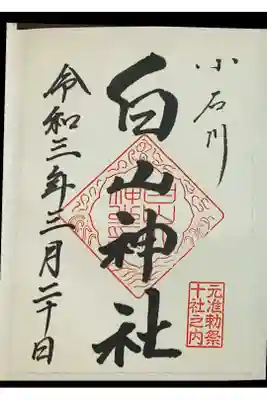 小石川
白山神社
令和三年二月二十日
元准勅祭
十社之内